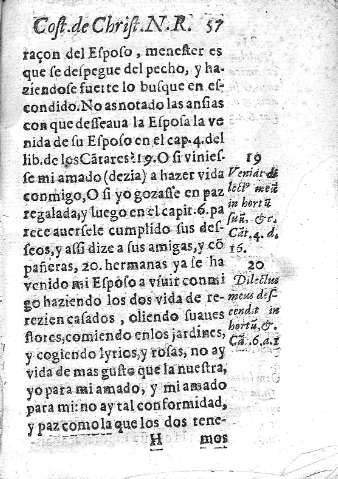 Cost. de Christ. N. R. 57
raçon del Esposo, menester es
que se despegue del pecho, y ha-
ziendose fuerte lo busque en es-
condido. No as notado las ansias
con que desseaua la Esposa la ve
nida de su Esposo en el cap. 4. del
lib. de los Cãtares? 19. O si vinies-
se mi amado (dezia) a hazer vida
conmigo, O si yo gozasse en paz
regalada, y luego en el capit. 6. pa
rece auersele cumplido sus des-
seos, y assi dize a sus amigas, y cõ
pañeras, 20. hermanas ya se ha
venido mi Esposo a viuir conmi
go haziendo los dos vida de re-
rezien casados, oliendo suaues
flores, comiendo en los jardines,
y cogiendo lyrios, y rosas, no ay
vida de mas gusto que la nuestra,
yo para mi amado, y mi amado
para mi: no ay tal conformidad,
y paz como la que los dos tene-
H mos
19
Veniat di
lect9 meũ
in hortũ
suũ, &c.
Cãt. 4. d.
16.
20
Dilectus
meus des-
cendit in
hortũ, &.
Cã. 6. a. 1